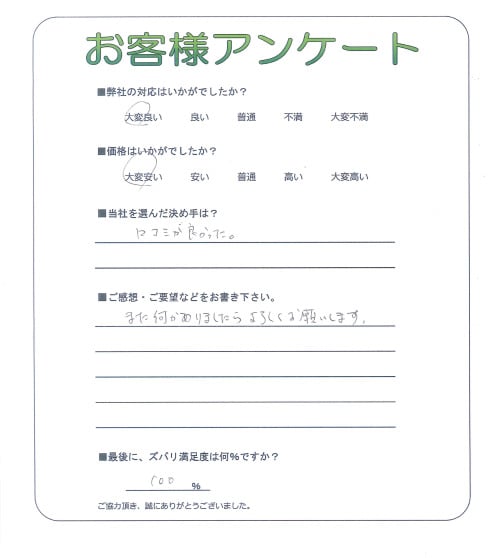 お客様アンケート
■弊社の対応はいかがでしたか？
大変良い 良い 普通 不満 大変不満
■価格はいかがでしたか？
大変安い 安い 普通 高い 大変高い
■当社を選んだ決め手は？
口コミが良かった。
■ご感想・ご要望などをお書き下さい。
また何かありましたらよろしくお願いします。
■最後に、ズバリ満足度は何％ですか？
100 ％
ご協力頂き、誠にありがとうございました。